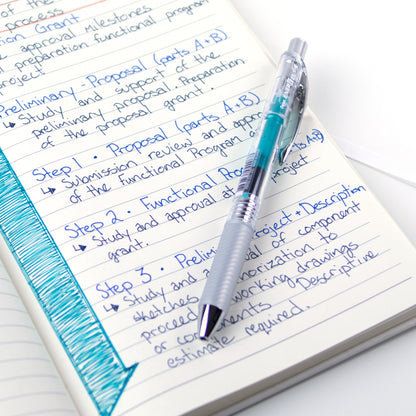 of the
process
ion Grant.
approval milestones
preparation functional program
project
Preliminary · Proposal (parts A+B)
↳ Study and support of the
preliminary proposal. Preparation
of the proposal grant.
Step 1 · Proposal (parts A+B)
↳ Submission review and appro
of the Functional Program o
Step 2 · Functional Pro (parts A+B)
↳ Study and approval at project
grant.
Step 3 · Prelimi roject + Description
↳ Study and a al of component
sketches thorization to
proceed working drawings
or co ents Descriptive
estimate required.